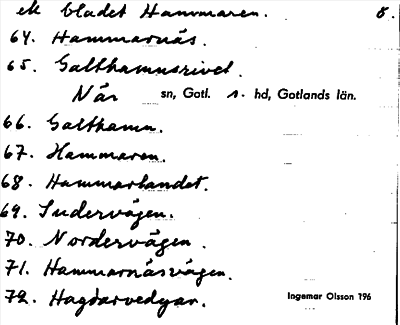 ek bladet Hammaren. 8.
64. Hammarnäs.
65. Salthamnsrivet.
När sn, Gotl. s. hd, Gotlands län.
66. Salthamn.
67. Hammaren.
68. Hammarlandet.
69. Sudervägen.
70. Nordervägen.
71. Hammarnäsvägen.
72. Hagdarvedyar.
Ingemar Olsson 196